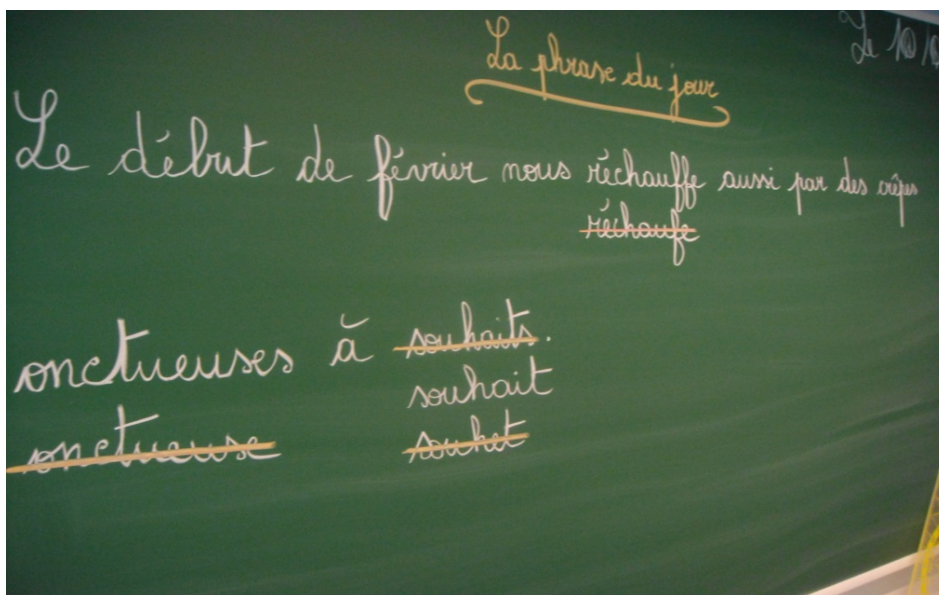 La phrase du jour
Le 10
Le début de février nous réchauffe aussi par des crêpes
réchaufe
onctueuses à souhaits.
souhait
onctueuse souhet